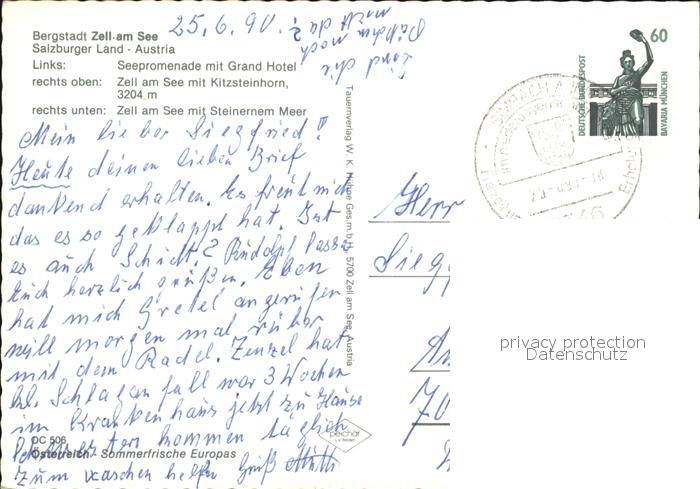 25.6.90.
Sind die
Mädchen noch
nicht da?
Bergstadt Zell am See
Salzburger Land - Austria
Links: Seepromenade mit Grand Hotel
rechts oben: Zell am See mit Kitzsteinhorn,
3204 m
rechts unten: Zell am See mit Steinernem Meer
Mein lieber Siegfried!
Heute deinen lieben Brief
dankend erhalten. Es freut mich
das es so geklappt hat. Ist
es auch Schicht? Rudolf lasse
Euch herzlich grüßen. Eben
hat mich Gretel angerufen
will morgen mal rüber
mit dem Radel. Zenzel hat
Schlaganfall war 3 Wochen
im Krankenhaus jetzt zu Hause
kommen täglich
zum waschen helfen Gruß Mutti
OC 506
Österreich - Sommerfrische Europas
Tauernverlag W. K. Ges.m.b.H., 5700 Zell am See, Austria
60
DEUTSCHE BUNDESPOST
BAVARIA MÜNCHEN
Herr
privacy protection
Datenschutz